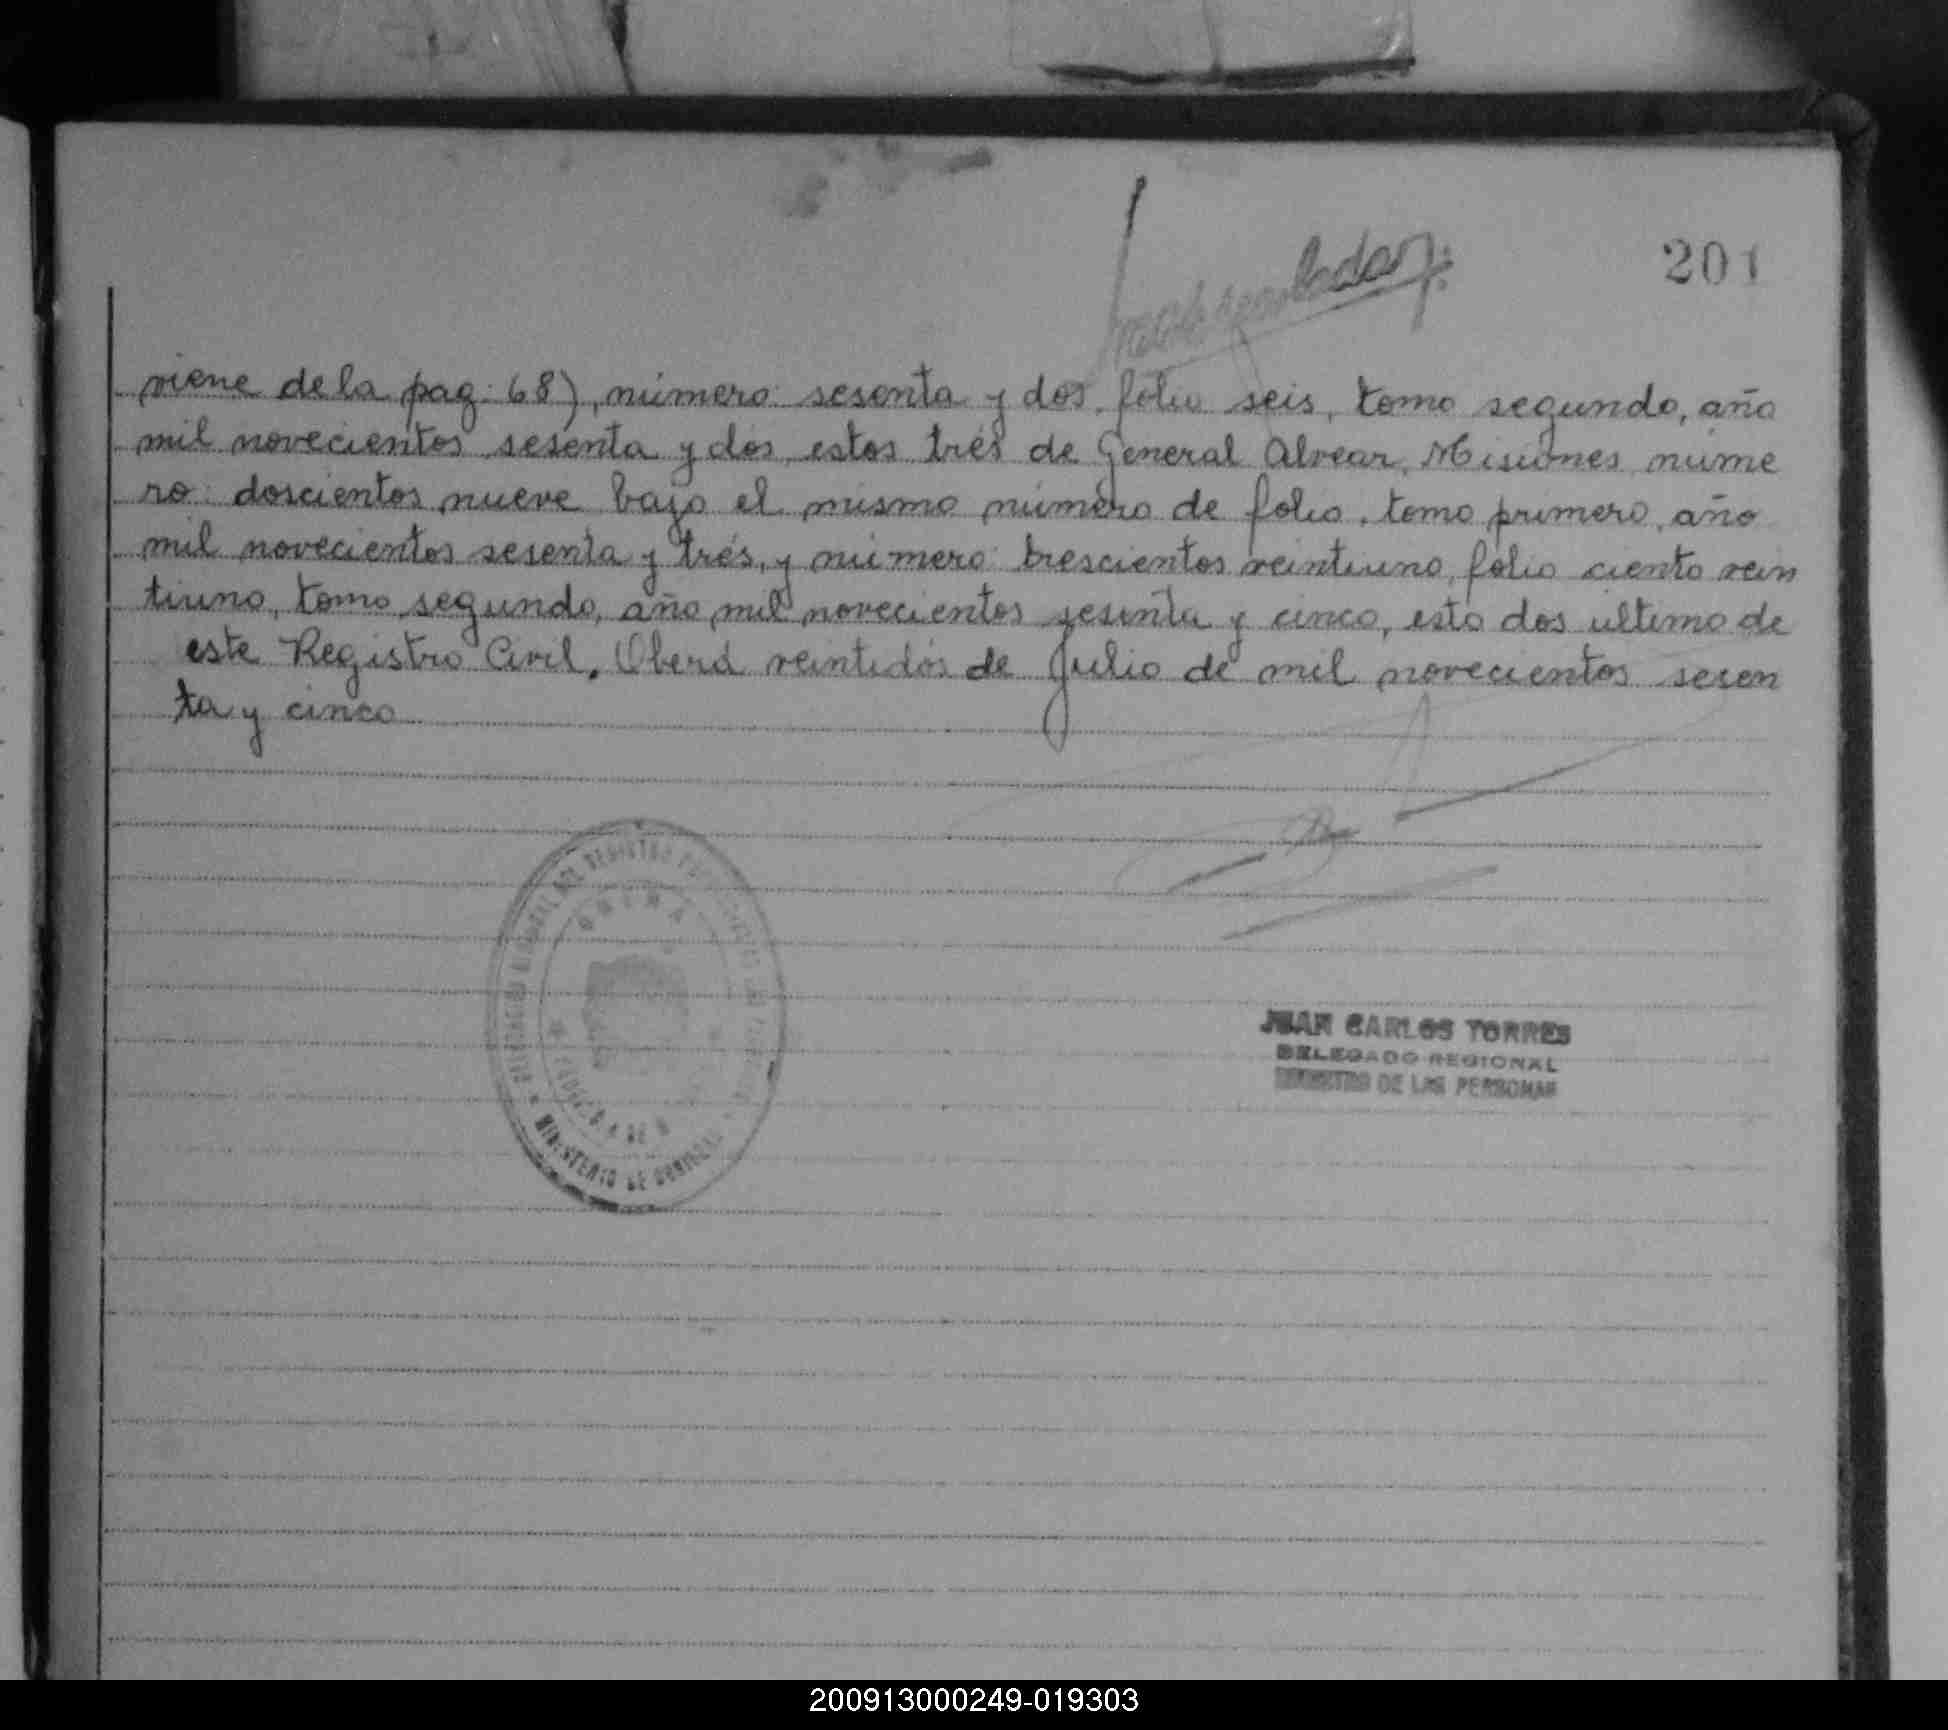 201
viene de la pag. 68), número: sesenta y dos, folio seis, tomo segundo, año
mil novecientos sesenta y dos, estos trés de General Alvear, Misiones, núme
ro: doscientos nueve bajo el mismo número de folio, tomo primero, año
mil novecientos sesenta y trés, y número: trescientos veintiuno, folio ciento vein
tiuno, tomo segundo, año mil novecientos sesenta y cinco, esto dos ultimo de
este Registro Civil. Oberá veintidós de Julio de mil novecientos sesen
ta y cinco
OBERÁ
MINISTERIO DE GOBIERNO
JUAN CARLOS TORRES
DELEGADO REGIONAL
REGISTRO DE LAS PERSONAS
200913000249-019303